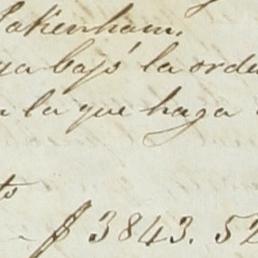 Pakenham.
ya bajo la orde
la que haga
to
$ 3843.52